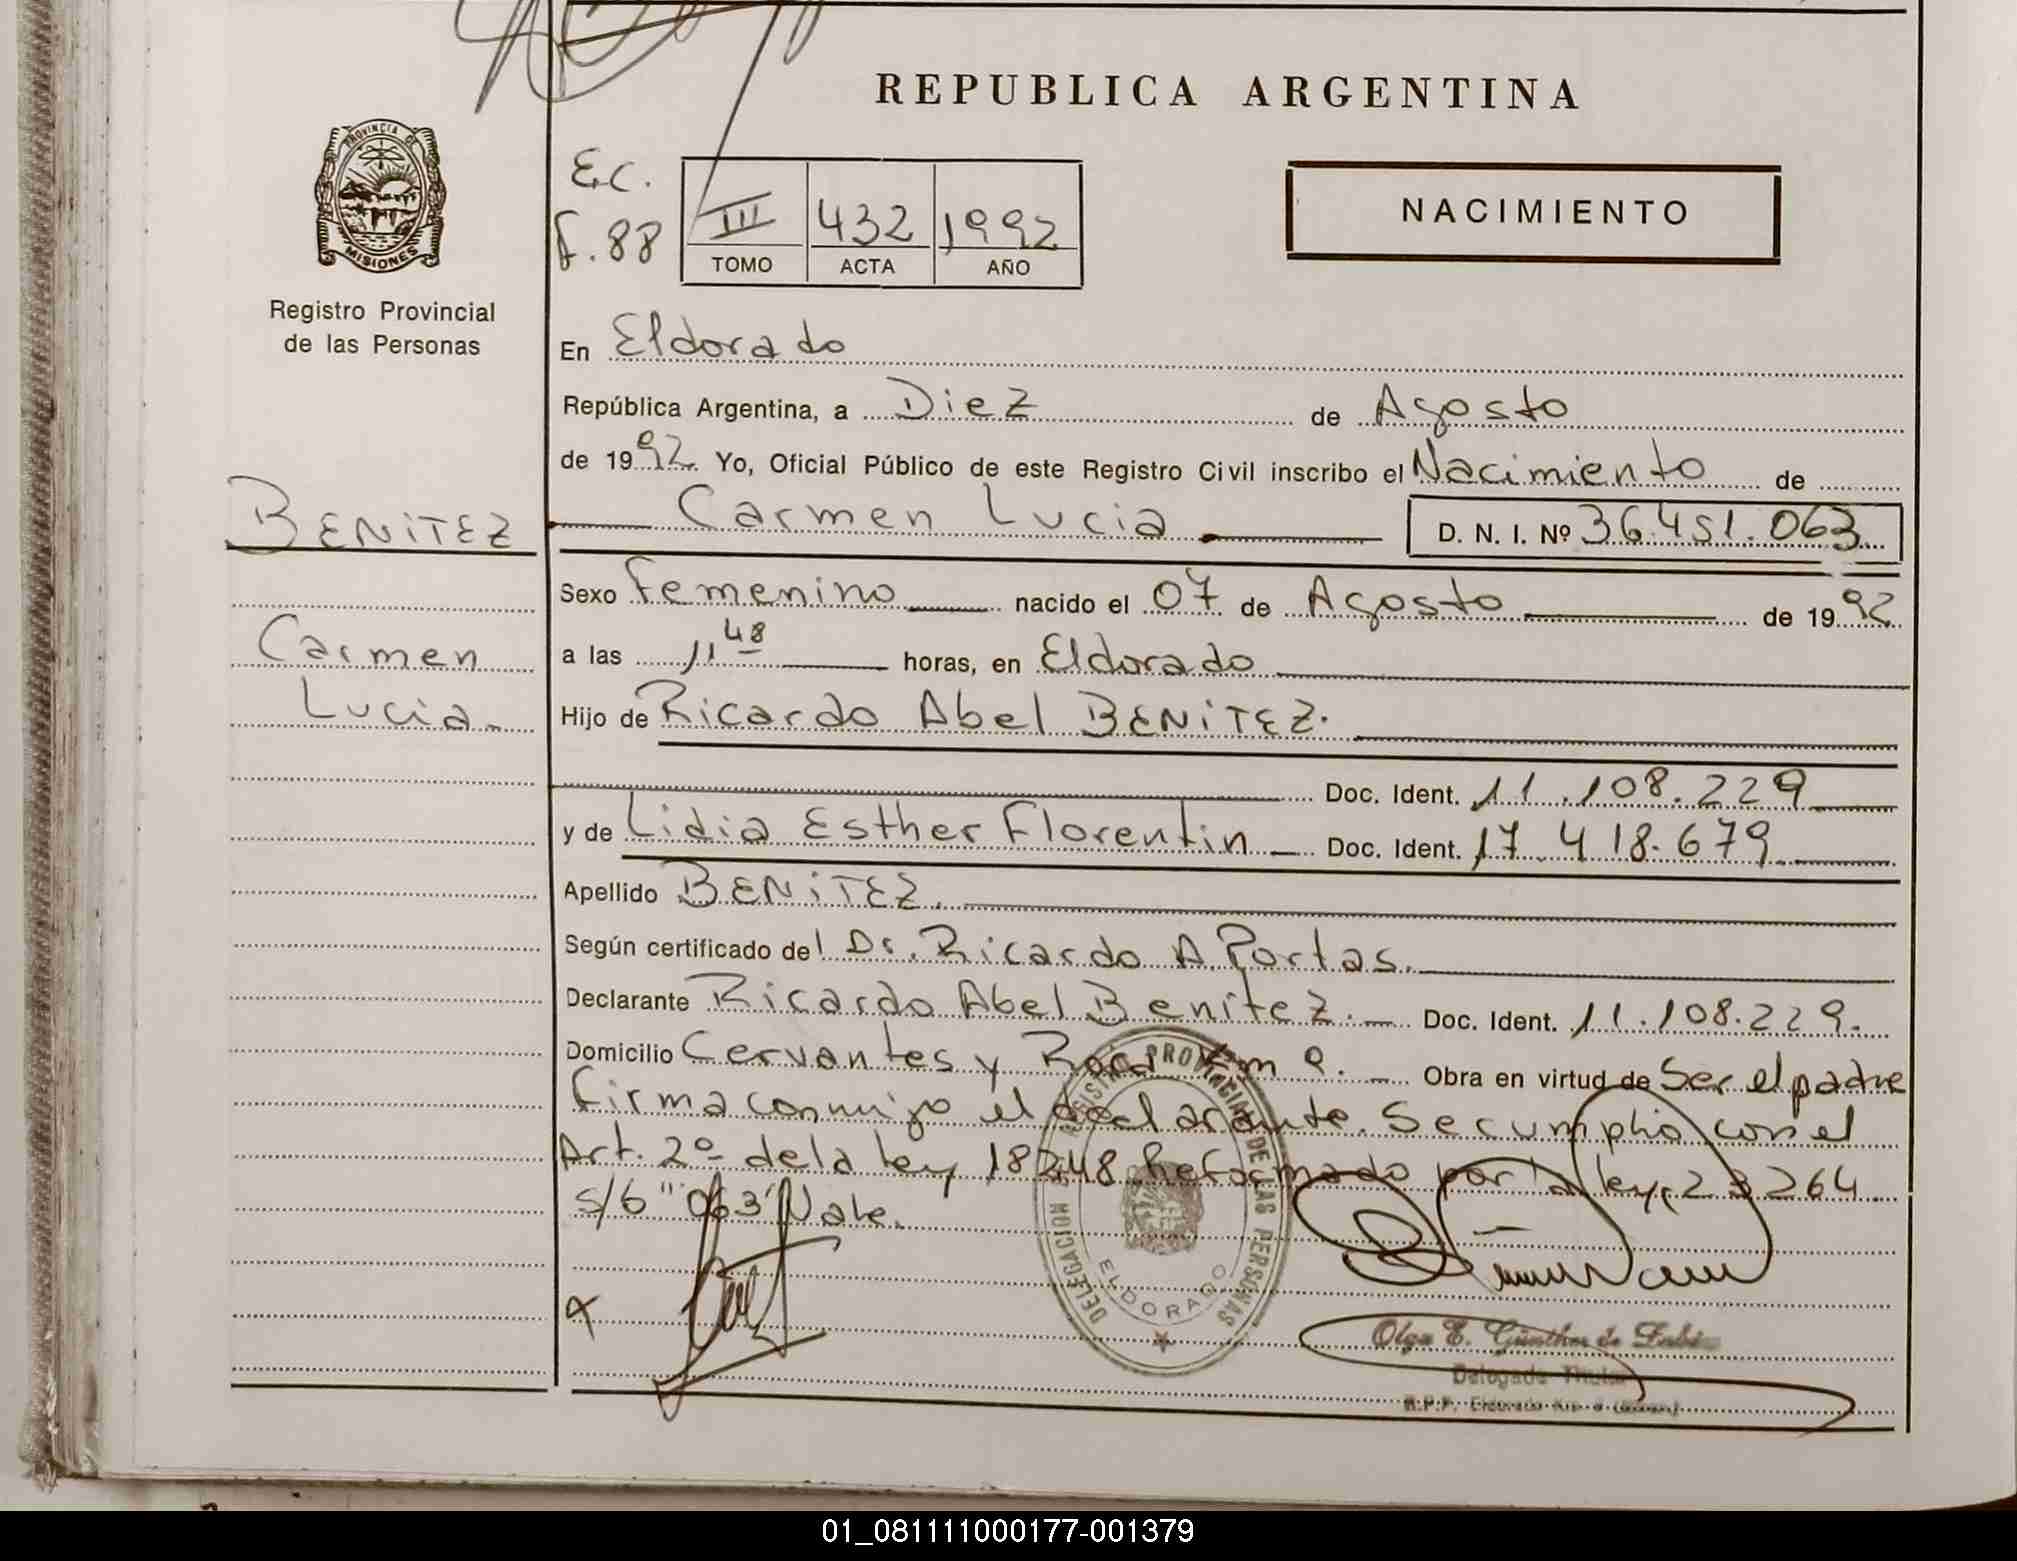 REPUBLICA ARGENTINA
PROVINCIA DE
MISIONES
Registro Provincial
de las Personas
E.C.
f. 88
III 432 1992
TOMO ACTA AÑO
NACIMIENTO
En Eldorado
República Argentina, a Diez de Agosto
de 1992. Yo, Oficial Público de este Registro Civil inscribo el Nacimiento de
BENITEZ
Carmen
Lucia
Carmen Lucia D. N. I. Nº 36.451.063
Sexo Femenino nacido el 07 de Agosto de 1992
a las 11 48 horas, en Eldorado
Hijo de Ricardo Abel BENITEZ.
Doc. Ident. 11.108.229
y de Lidia Esther Florentin Doc. Ident. 17.418.679
Apellido BENITEZ.
Según certificado del Dr. Ricardo A. Portas.
Declarante Ricardo Abel Benitez. Doc. Ident. 11.108.229.
Domicilio Cervantes y Roca Km 9. Obra en virtud de Ser el padre
firma conmigo el declarante. Se cumplió con el
Art. 2º de la ley 18248 Reformado por la ley 23264.
s/b "063" Vale.
DELEGACION REGISTRO PROVINCIAL DE LAS PERSONAS
ELDORADO
Olga E. Günther de
Delegada Titular
R.P.P. Eldorado Km. 9
01_081111000177-001379